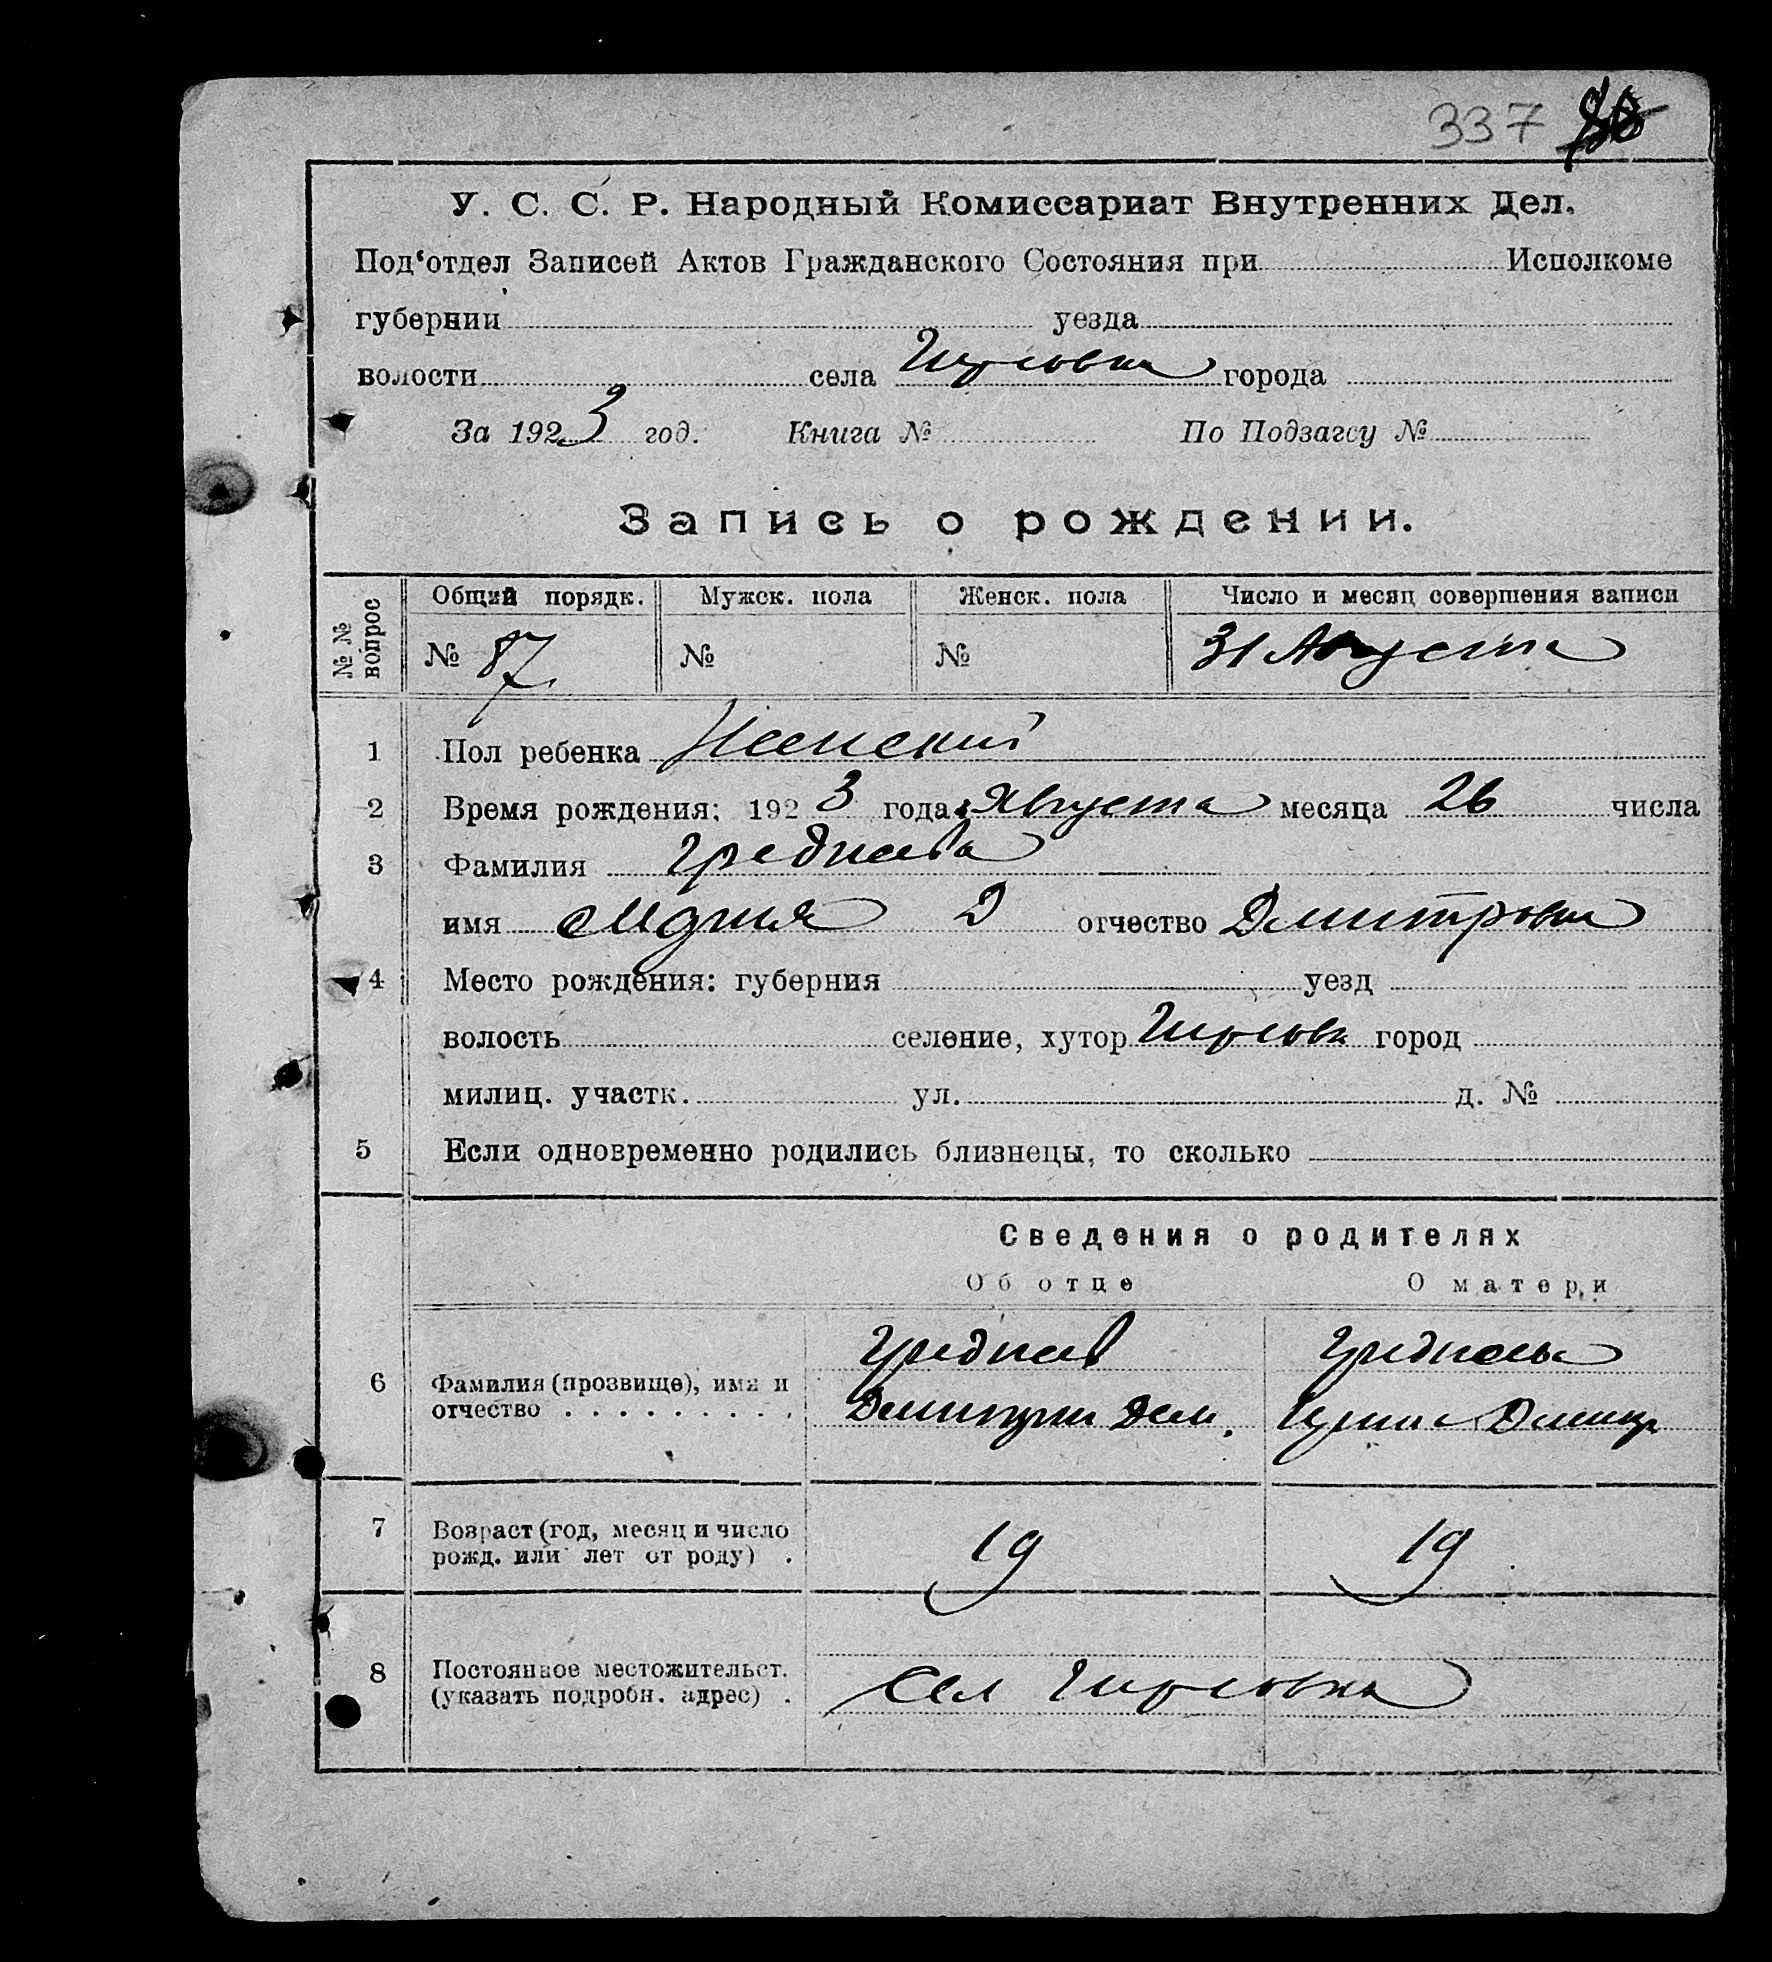 337
У. С. С. Р. Народный Комиссариат Внутренних Дел.
Под‘отдел Записей Актов Гражданского Состояния при Исполкоме
губернии уезда
волости села города
За 1923 год. Книга № По Подзагсу №
Запись о рождении.
№ № вопрос Общий порядк. Мужск. пола Женск. пола Число и месяц совершения записи
№ 87 № № 31 Августа
1 Пол ребенка Женский
2 Время рождения: 1923 года Августа месяца 26 числа
3 Фамилия
имя Мария Д отчество Дмитровна
4 Место рождения: губерния уезд
волость селение, хутор город
милиц. участк. ул. д. №
5 Если одновременно родились близнецы, то сколько
Сведения о родителях
Об отце О матери
6 Фамилия (прозвище), имя и
отчество
7 Возраст (год, месяц и число
рожд. или лет от роду) 19 19
8 Постоянное местожительст.
(указать подробн. адрес) Сел